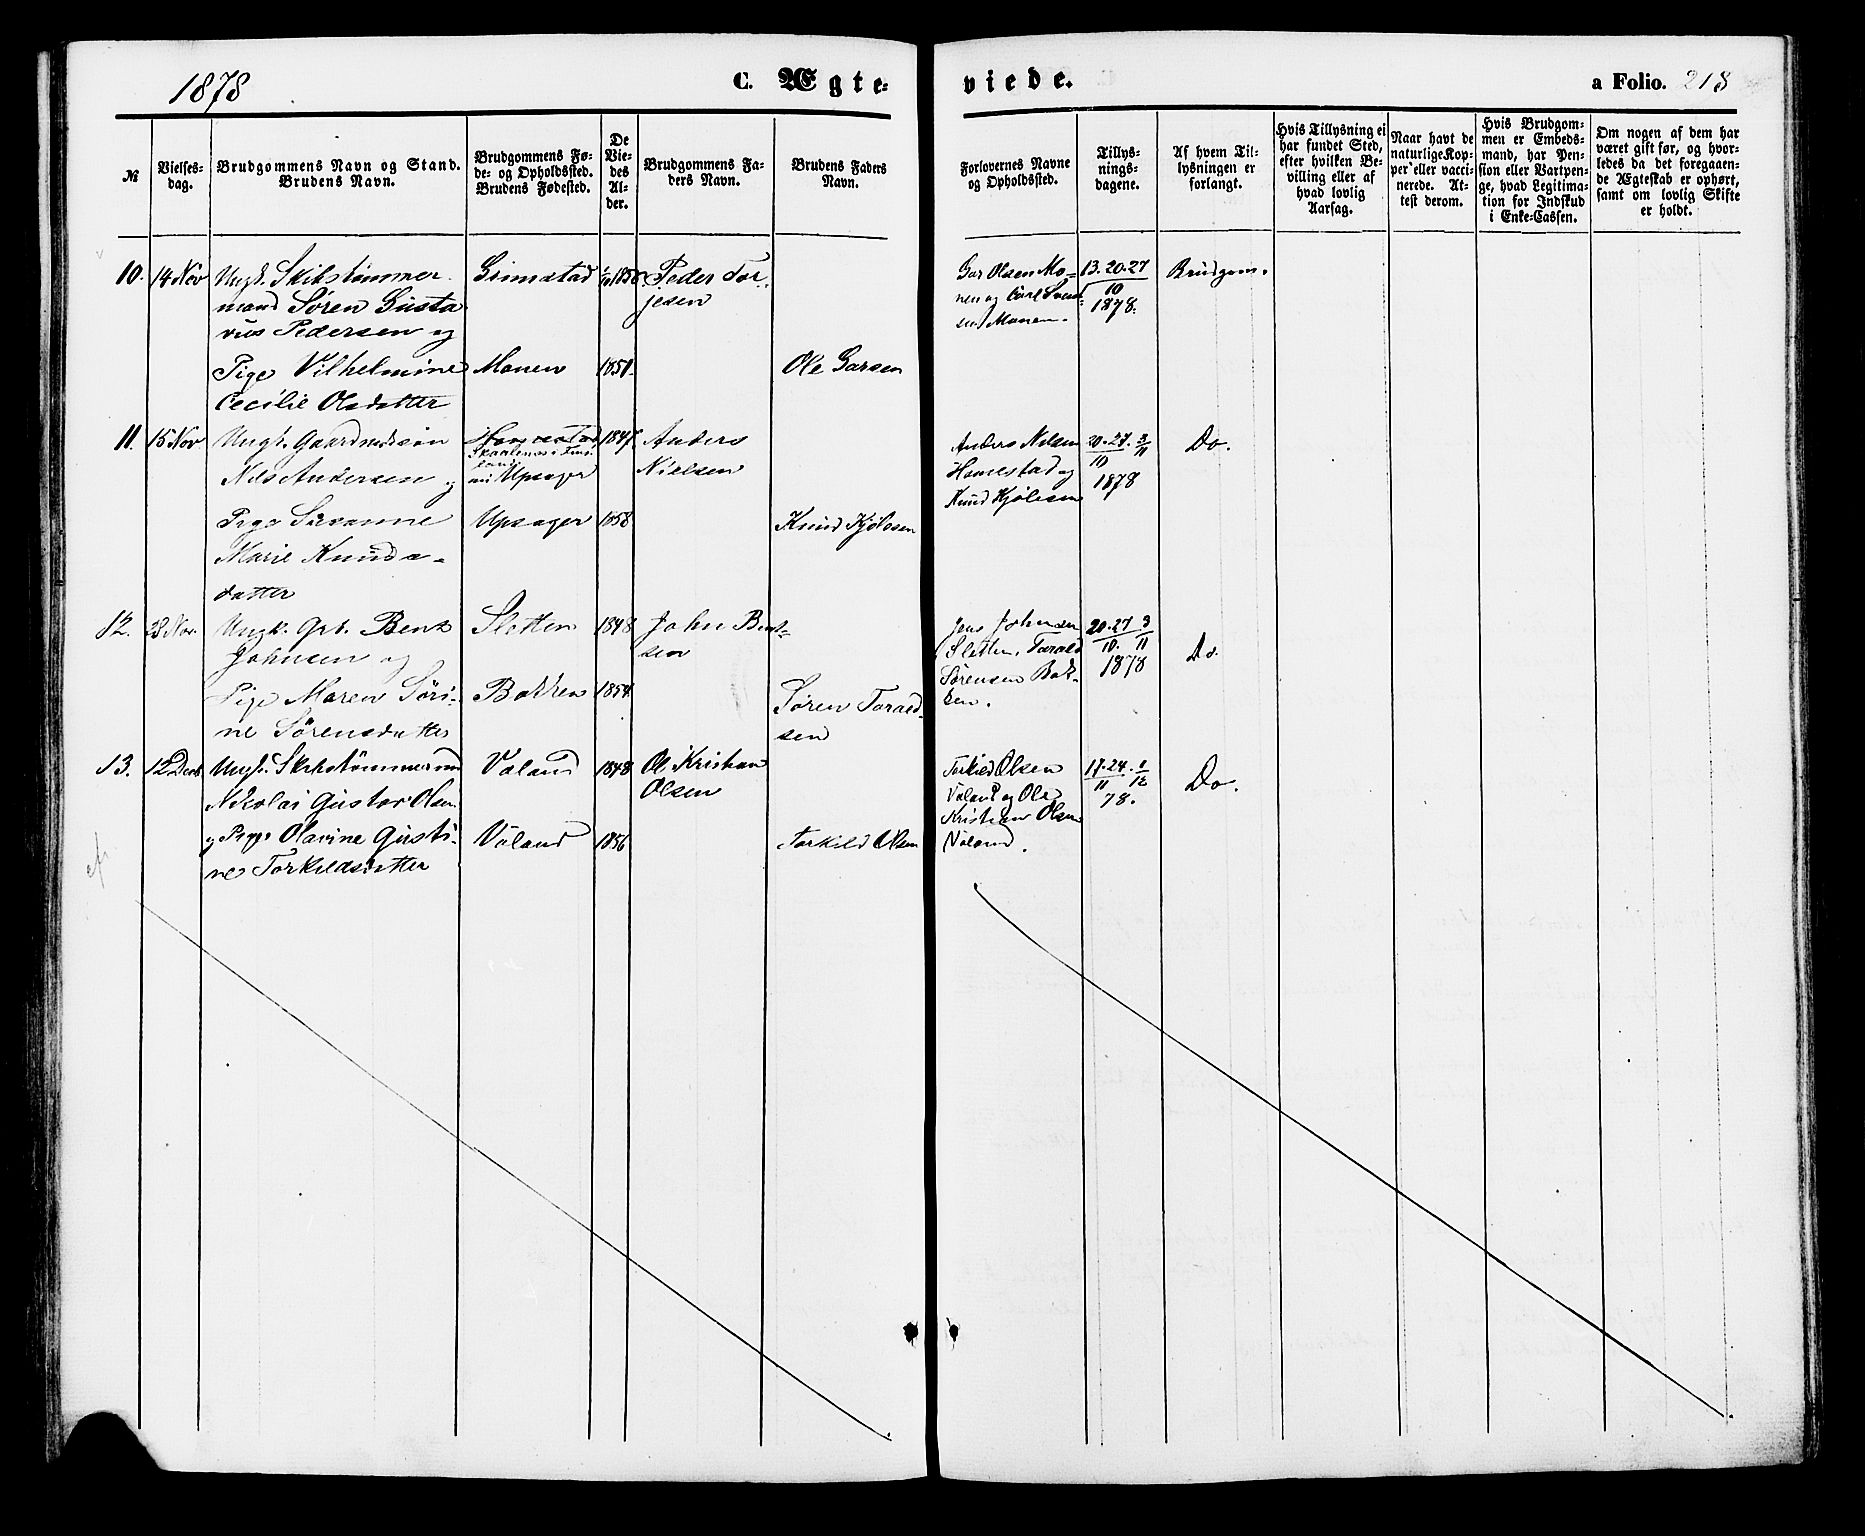 1878
C. Ægte-
viede.
a Folio. 218
№
Vielses-
dag.
Brudgommens Navn og Stand.
Brudens Navn.
Brudgommens Fø-
de- og Opholdssted.
Brudens Fødested.
De
Vie-
des
Al-
der.
Brudgommens Fa-
ders Navn.
Brudens Faders
Navn.
Forlovernes Navne
og Opholdssted.
Tillys-
nings-
dagene.
Af hvem Til-
lysningen er
forlangt.
Hvis Tillysning ei
har fundet Sted,
efter hvilken Be-
villing eller af
hvad lovlig
Aarsag.
Naar havt de
naturlige Kop-
per eller vacci-
nerede. At-
test derom.
Hvis Brudgom-
men er Embeds-
mand, har Pen-
sion eller Vartpen-
ge, hvad Legitima-
tion for Indskud
i Enke-Cassen.
Om nogen af dem har
været gift før, og hvor-
ledes da det foregaaen-
de Ægteskab er ophørt,
samt om lovlig Skifte
er holdt.
10.
14 Nov
Ungk. Skibstømmer
mand Søren Gusta
vus Pedersen og
Pige Vilhelmine
Cecilie Olsdatter
Grimstad
Monen
1851
Peder Tor
jesen
Ole Garsen
Gar Olsen Mo-
nen og Carl Svend-
sen Monen.
13. 20. 27
10
1878.
Brudgom.
11.
15 Nov
Ungk. Gaardmdssøn
Nils Andersen og
Pige Susanne
Marie Knuds-
datter
Upsager
Upsager
1847
1858
Anders
Nielsen
Knud Kjølesen
Anders Nilsen
Homestad og
Knud Kjølesen
20. 27. 3
10 11
1878
Do.
12.
28 Nov.
Ungk. Grb. Bent
Johnsen og
Pige Maren Søri-
ne Sørensdatter
Sletten
Bakken
1848
1854
John Bent-
sen
Søren Tarald-
sen
Jens Johnsen
Sletten, Tarald
Sørensen Bak-
ken.
20. 27 3
10. 11
1878
Do
13.
12 Decb
Ungk. Skibstømmermd
Nikolai Gustav Olsen
og Pige Olavine Gusti-
ne Torkildsdatter
Valand
Valand
1848
1856
Ol. Kristian
Olsen
Torkild Olsen
Torkild Olsen
Valand og Ole
Kristian Olsen
Valand.
17. 24. 1
11 12
78.
Do.